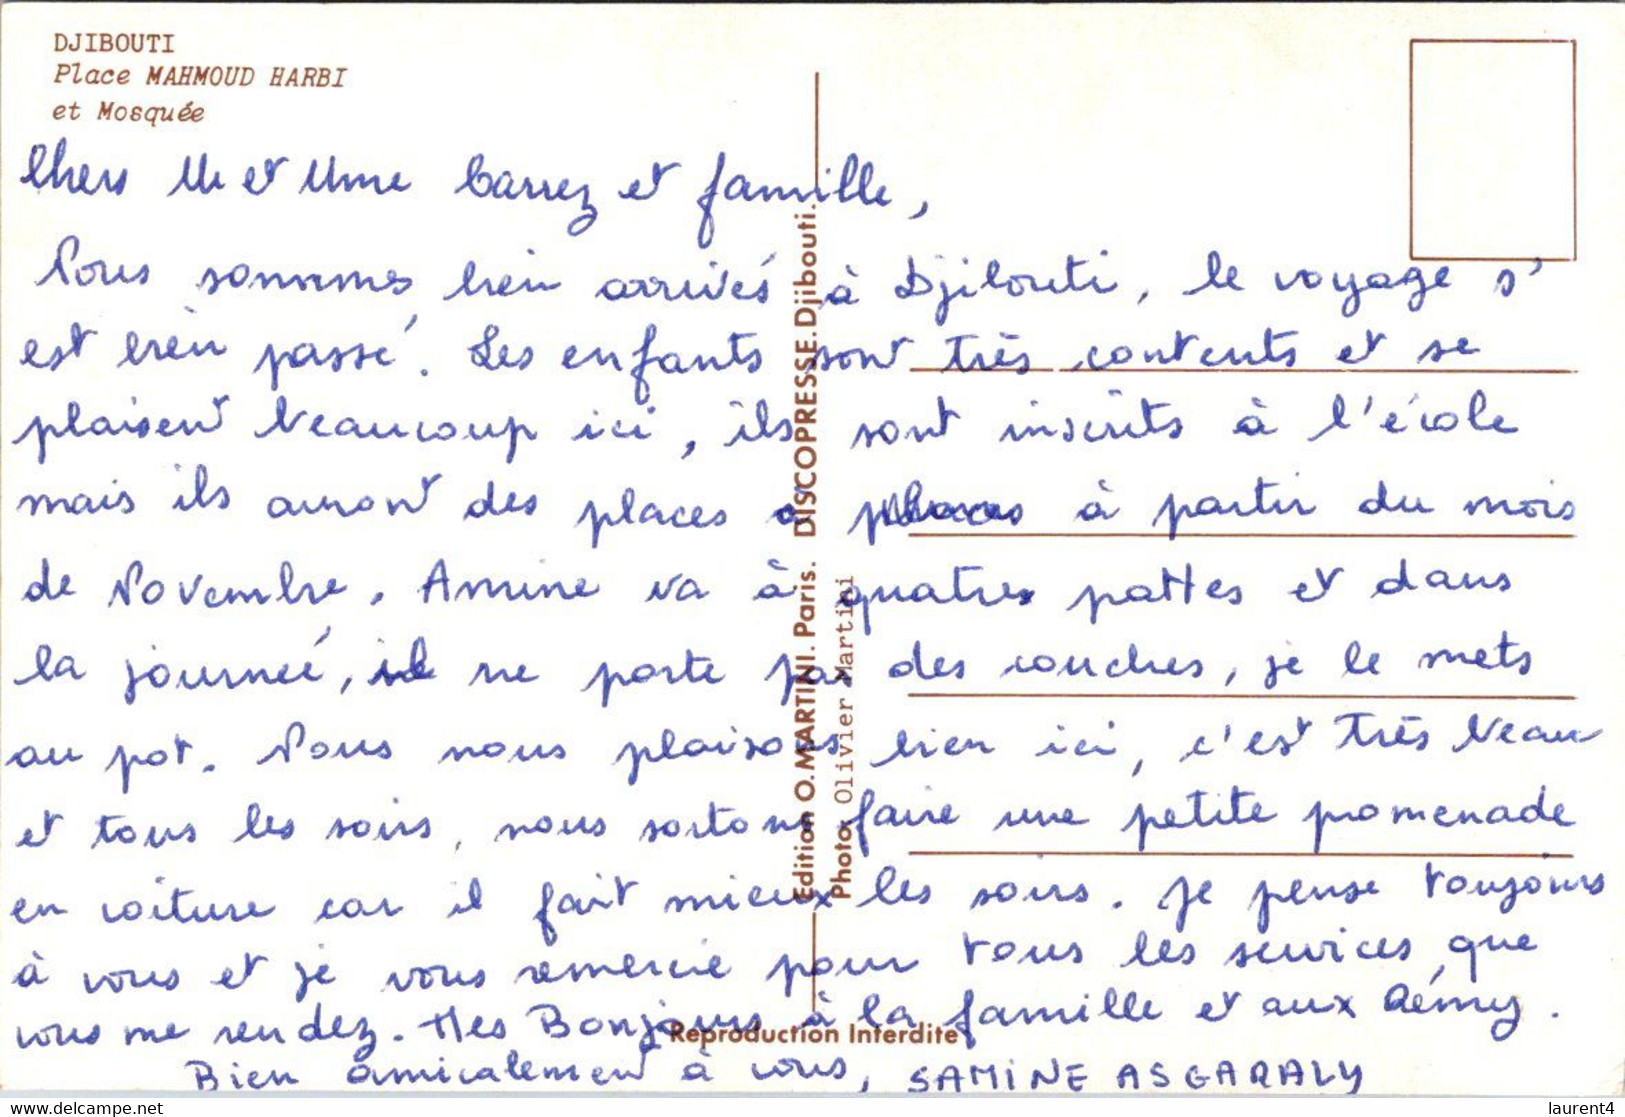 DJIBOUTI
Place MAHMOUD HARBI
et Mosquée
Chers Mr et Mme Carrez et famille,
Nous sommes bien arrivés à Djibouti, le voyage s'
est bien passé. Les enfants sont très contents et se
plaisent beaucoup ici, ils sont inscrits à l'école
mais ils auront des places à partir du mois
de Novembre. Amine va à quatres pattes et dans
la journeé, il ne porte pas des couches, je le mets
au pot. Nous nous plaisons bien ici, c'est très beau
et tous les soirs, nous sortons faire une petite promenade
en voiture car il fait mieux les soirs. Je pense toujours
à vous et je vous remercie pour tous les services que
vous me rendez. Mes Bonjours à la famille et aux Rémy.
Bien amicalement à vous, SAMINE ASGARALY
Edition O.MARTINI. Paris. DISCOPRESSE.Djibouti.
Photo Olivier Martini
Reproduction Interdite
laurent4
www.delcampe.net